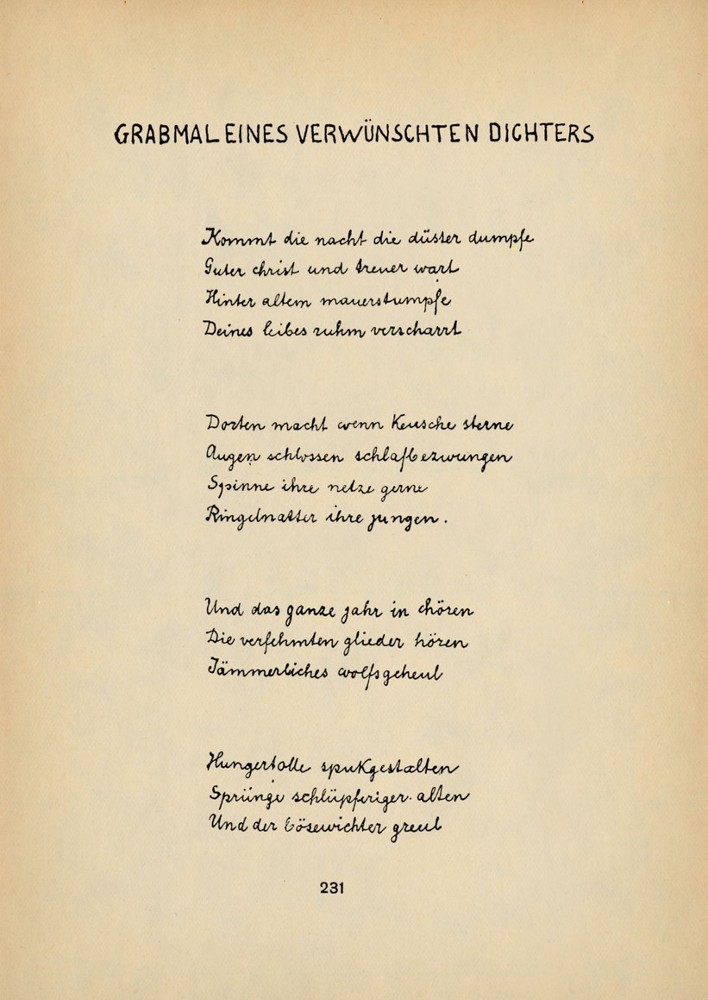 GRABMAL EINES VERWÜNSCHTEN DICHTERS
Kommt die nacht die düster dumpfe
Guter christ und treuer wart
Hinter altem mauerstumpfe
Deines leibes ruhm verscharrt
Dorten macht wenn keusche sterne
Augen schlossen schlafbezwungen
Spinne ihre netze gerne
Ringelnatter ihre jungen.
Und das ganze jahr in chören
Die verfehmten glieder hören
Jämmerliches wolfsgeheul
Hungertolle spukgestalten
Sprünge schlüpfriger alten
Und der bösewichter greul
231